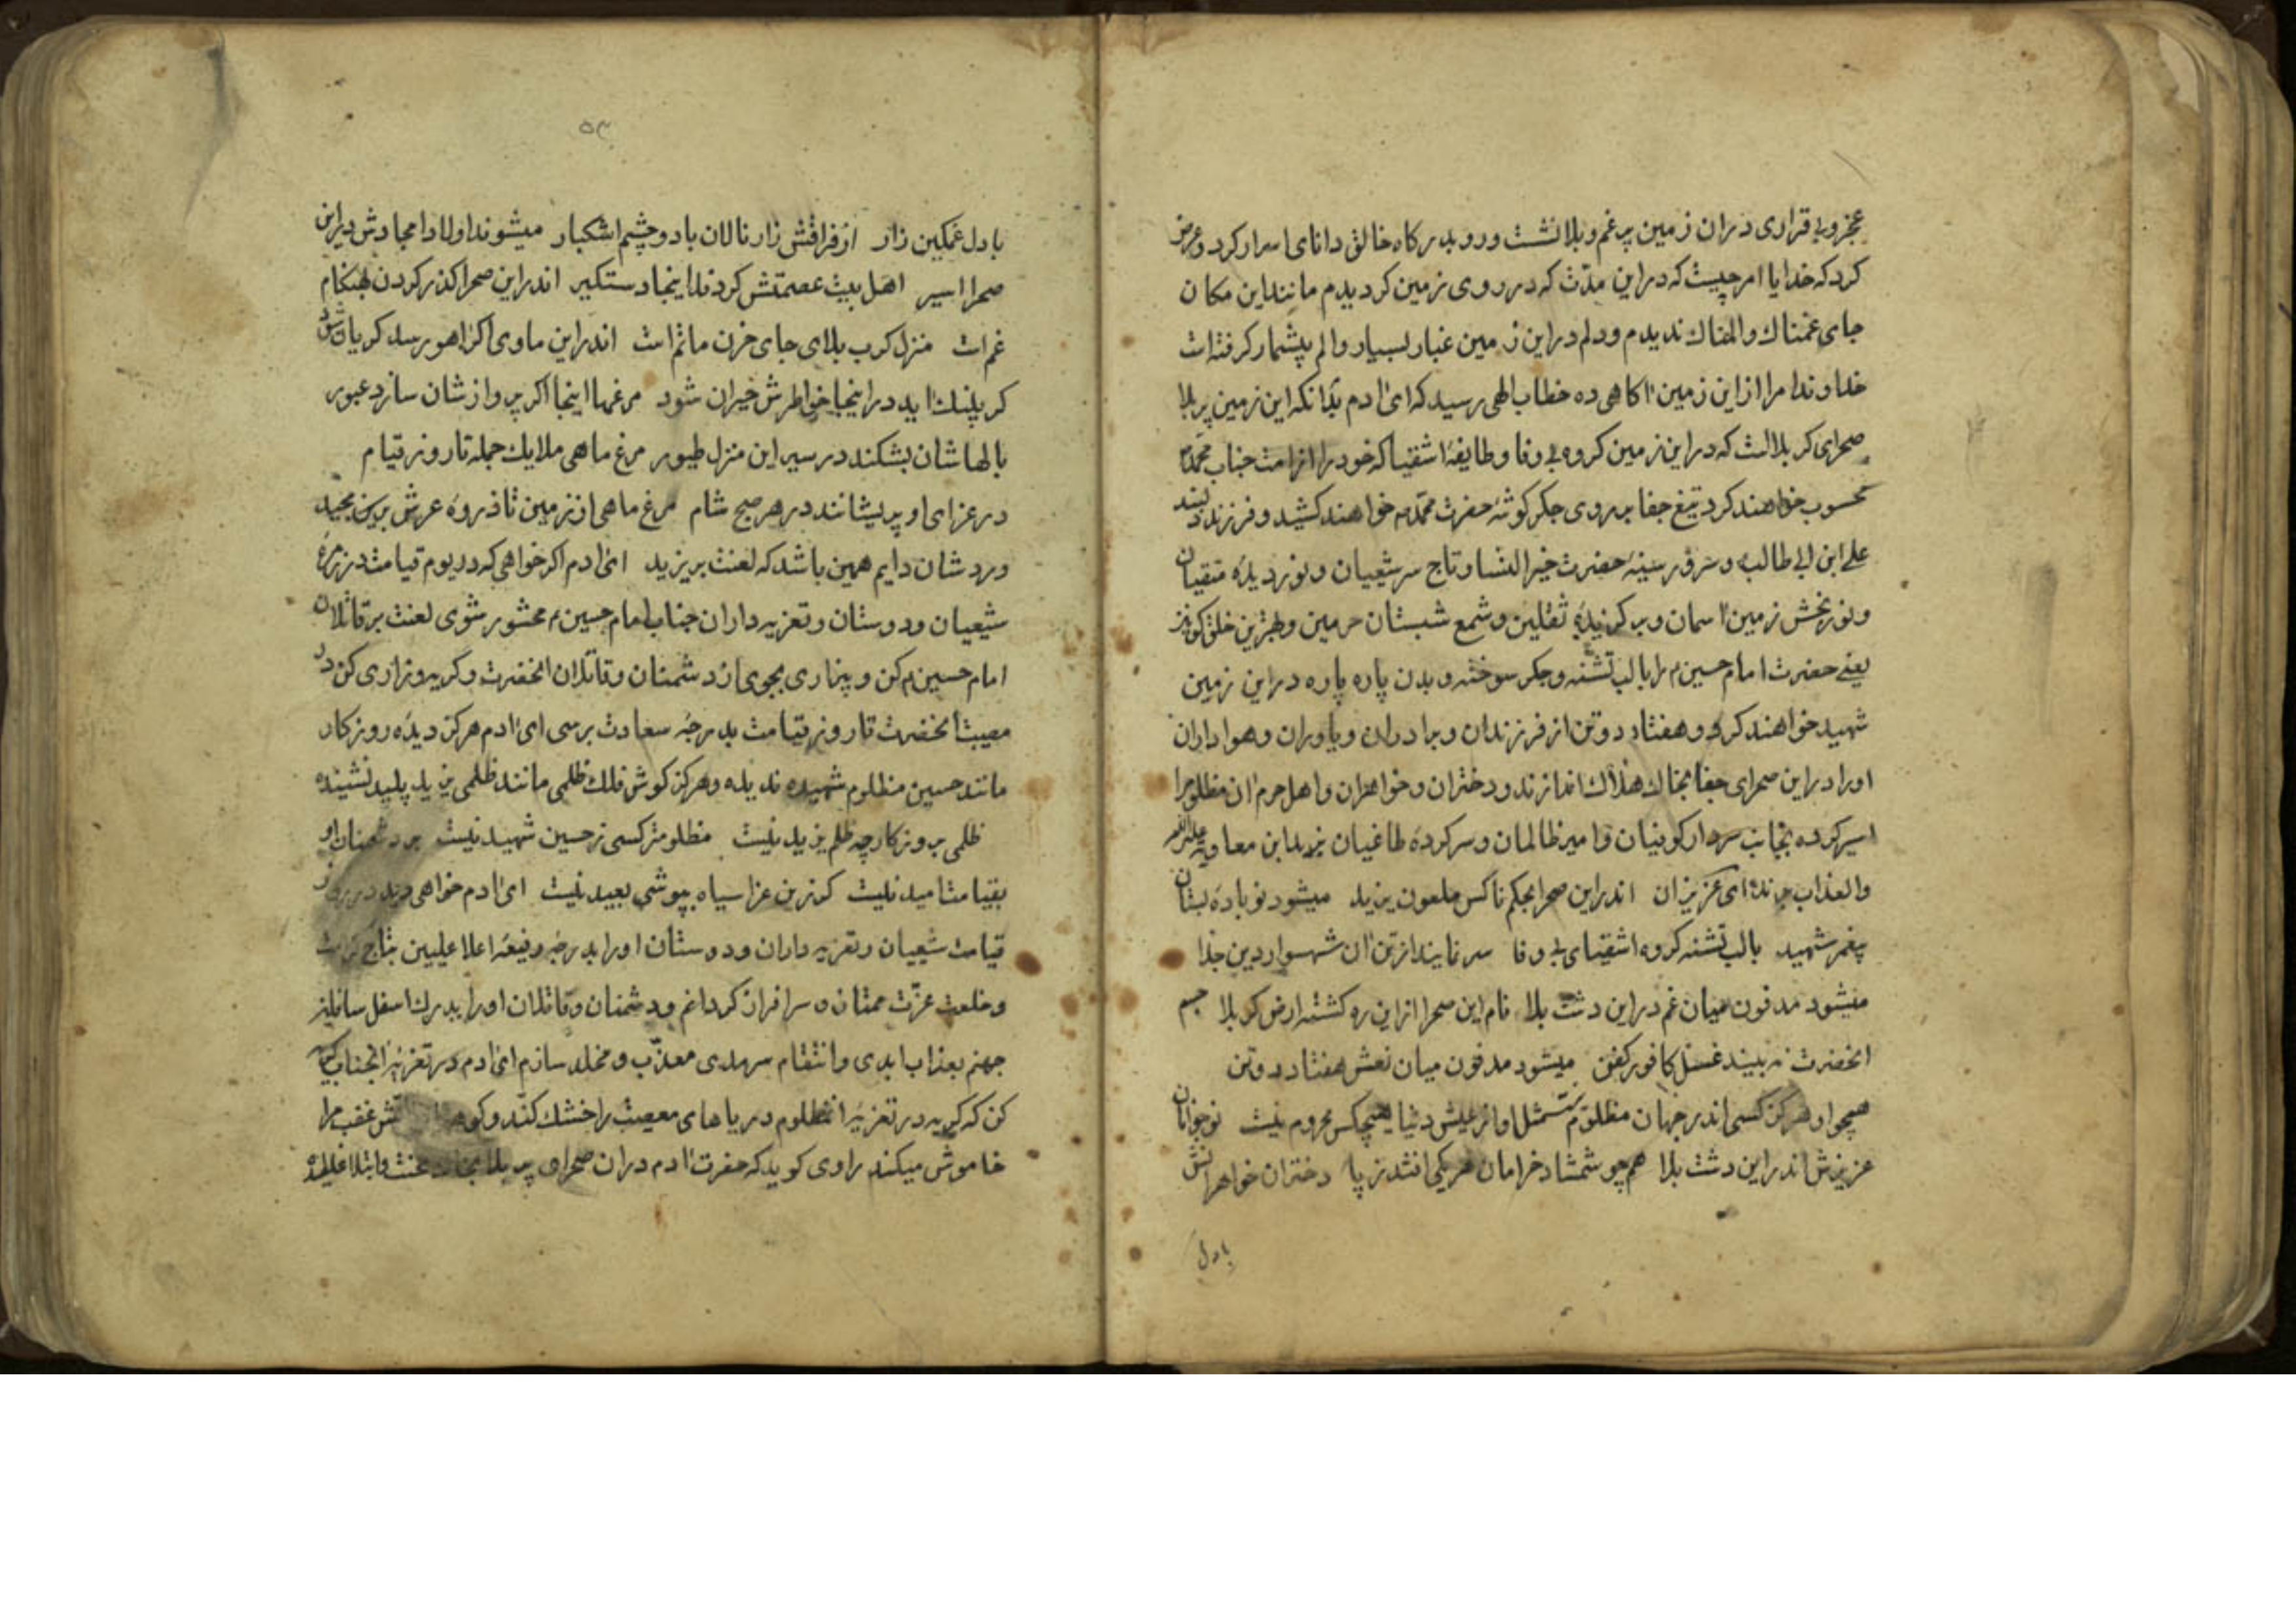 عجز و بی قراری دران زمین پر غم و بلا نشست و رو بدرکاه خالق دانای اسرار کرد و عرض
کرد که خدایا امر چیست که در این مدّت که در روی زمین کردیدم مانند این مکان
جای غمناک و المناک ندیدم و دلم در این زمین غبار بسیار و الم بیشمار کرفته است
خداوندا مرا از این زمین اکاهی ده خطاب الهی رسید که ای ادم بدانکه این زمین پر بلا
صحرای کربلا است که در این زمین کروه بی وفا و طایفهٔ اشقیا که خود را از امت جناب محمّد
محسوب خواهند کرد تیغ جفا بر روی جکر کوشهٔ حضرت محمّد خواهند کشید و فرزند دلبند
علی ابن ابی طالب و سرور سینهٔ حضرت خیر النسا و تاج سر شیعیان و نور دیدهٔ متقیان
و نور بخش زمین اسمان و بر کزیدهٔ ثقلین و شمع شبستان حرمین و بهترین خلق کونین
یعنی حضرت امام حسین م را با لب تشنه و جکر سوخته و بدن پاره پاره در این زمین
شهید خواهند کرد و هفتاد دو تن از فرزندان و برادران و یاوران و هواداران
او را در این صحرای جفا بخاک هلاک اندازند و دختران و خواهران و اهل حرم ان مظلوم را
اسیر کرده بجانب سردار کوفیان و امیر ظالمان و سر کردهٔ طاغیان یزید ابن معاویه
والعذاب برند ای عزیزان اندر این صحرا بحکم ناکس ملعون یزید میشود نو بادهٔ بستان
پیغمبر شهید با لب تشنه کروه اشقیای بی وفا سر نمایند از تن ان شهسوار دین جدا
میشود مدفون میان غم در این دشت بلا نام این صحرا از این ره کشته ارض کربلا جسم
انحضرت نه بیند غسل کافور کفن میشود مدفون میان نعش هفتاد دو تن
همچو او هرکز کسی اندر جهان مظلوم نیست مثل او از عیش دنیا هیچکس محروم نیست نوجوانان
عزیزش اندر این دشت بلا همچو شمشاد خرامان هر یکی افتد ز پا دختران خواهرانش
با دل
۵۳
با دل غمکین زار از فراقش زار نالان با دو چشم اشکبار میشوند اولاد امجادش در این
صحرا اسیر اهل بیت عصمتش کردند اینجا دستکیر اندر این صحرا کذر کردن هنکام
غم است منزل کرب بلای جای حزن ماتم است اندر این ماوی اکر اهو رسد کریان شود
کر پلنک اید در اینجا خواطرش حیران شود مرغها اینجا اکر پرواز شان سازد عبور
بالهاشان بشکند در سیر این منزل طیور مرغ ماهی ملایک جمله تا روز قیام
در عزای او پریشانند در هر صبح شام مرغ ماهی از زمین تا ذروهٔ عرش برین مجید
ورد شان دایم همین باشد که لعنت بر یزید ای ادم اکر خواهی که در یوم قیامت در زمرهٔ
شیعیان و دوستان و تعزیه داران جناب امام حسین م محشور شوی لعنت بر قاتلان
امام حسین م کن و بیزاری بجوی از دشمنان و قاتلان انحضرت و کریه و زاری کن در
مصیبت انحضرت تا روز قیامت بدرجهٔ سعادت برسی ای ادم هرکز دیدهٔ روزکار
مانند حسین مظلوم شهیده ندیده و هرکز کوش فلک ظلمی مانند ظلمی یزید پلید نشینده
ظلمی بروزکار چه ظلم یزید نیست مظلوم تر کسی ز حسین شهید نیست بر دشمنان او
بقیامت امید نیست کر زین عزا سیاه بپوشی بعید نیست ای ادم خواهی دید در روز
قیامت شیعیان و تعزیه داران و دوستان او را بدرجهٔ رفیعهٔ اعلا علیین بتاج کرامت
و خلعت عزّت ممتاز و سرافراز کردانم و دشمنان و قاتلان او را بدرک اسفل سافلین
جهنم بعذاب ابدی و انتقام سرمدی معذّب و مخلد سازم ای ادم در تعزیهٔ انجناب کریه
کن که کریه در تعزیهٔ انمظلوم دریاهای معصیت را خشک کند و کوه اتش غضب مرا
خاموش میکند راوی کوید که حضرت ادم دران صحرای پر بلا بخاک محنت و ابتلا غلطیده